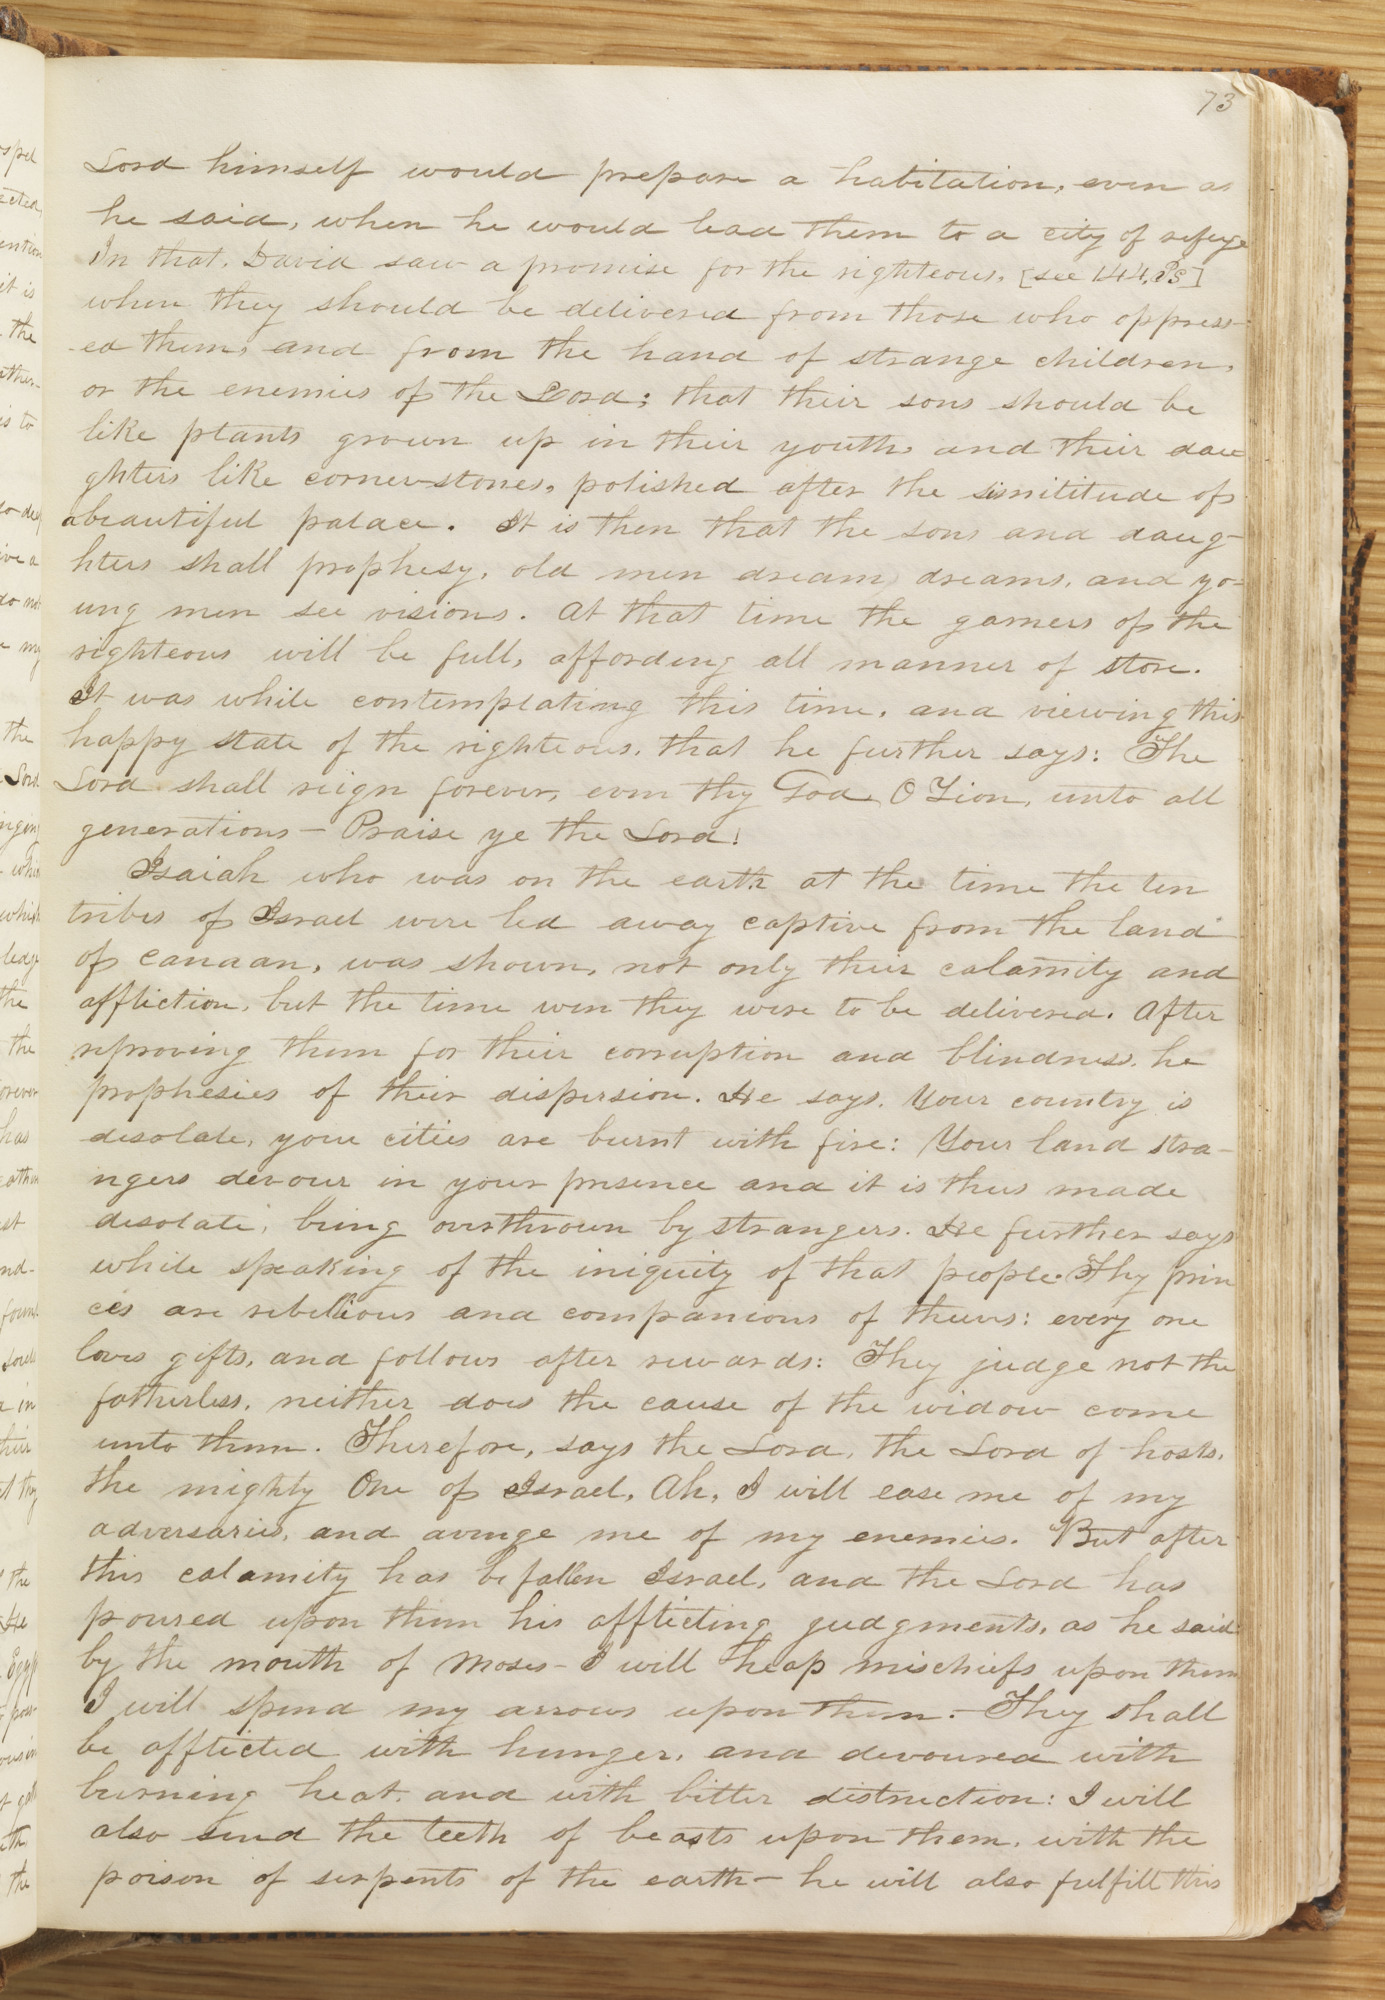 73
Lord himself would prepare a habitation, even as
he said, when he would lead them to a city of refuge
In that, David saw a promise for the righteous, [see 144, Ps]
when they should be delivered from those who oppress-
-ed them, and from the hand of strange children,
or the enemies of the Lord; that their sons should be
like plants grown up in their youth, and their dau
ghters like corner-stones, polished after the similitude of
a beautiful palace. It is then that the sons and daug-
hters shall prophesy, old men dream dreams, and yo-
ung men see visions. At that time the garners of the
righteous will be full, affording all manner of store.
It was while contemplating this time, and viewing this
happy state of the righteous, that he further says: The
Lord shall reign forever, even thy God, O Zion, unto all
generations— Praise ye the Lord!
Isaiah who was on the earth at the time the ten
tribes of Israel were led away captive from the land
of canaan, was shown, not only their calamity and
affliction, but the time wen they were to be delivered. After
reproving them for their corruption and blindness, he
prophesies of their dispersion. He says, Your country is
desolate, your cities are burnt with fire: Your land stra-
ngers devour in your presence and it is thus made
desolate, being overthrown by strangers. He further says
while speaking of the iniquity of that people. Thy prin
ces are rebellious and companions of theives: every one
loves gifts, and follows after rewards: They judge not the
fatherless, neither does the cause of the widow come
unto them. Therefore, says the Lord, the Lord of hosts,
the mighty One of Israel, Ah, I will ease me of my
adversaries, and avenge me of my enemies. But after
this calamity has befallen Israel, and the Lord has
poured upon them his afflicting judgments, as he said
by the mouth of Moses— I will heap mischiefs upon them
I will spend my arrows upon them.— They shall
be afflicted with hunger, and devoured with
burning heat, and with bitter distruction: I will
also send the teeth of beasts upon them, with the
poison of serpents of the earth— he will also fulfill this